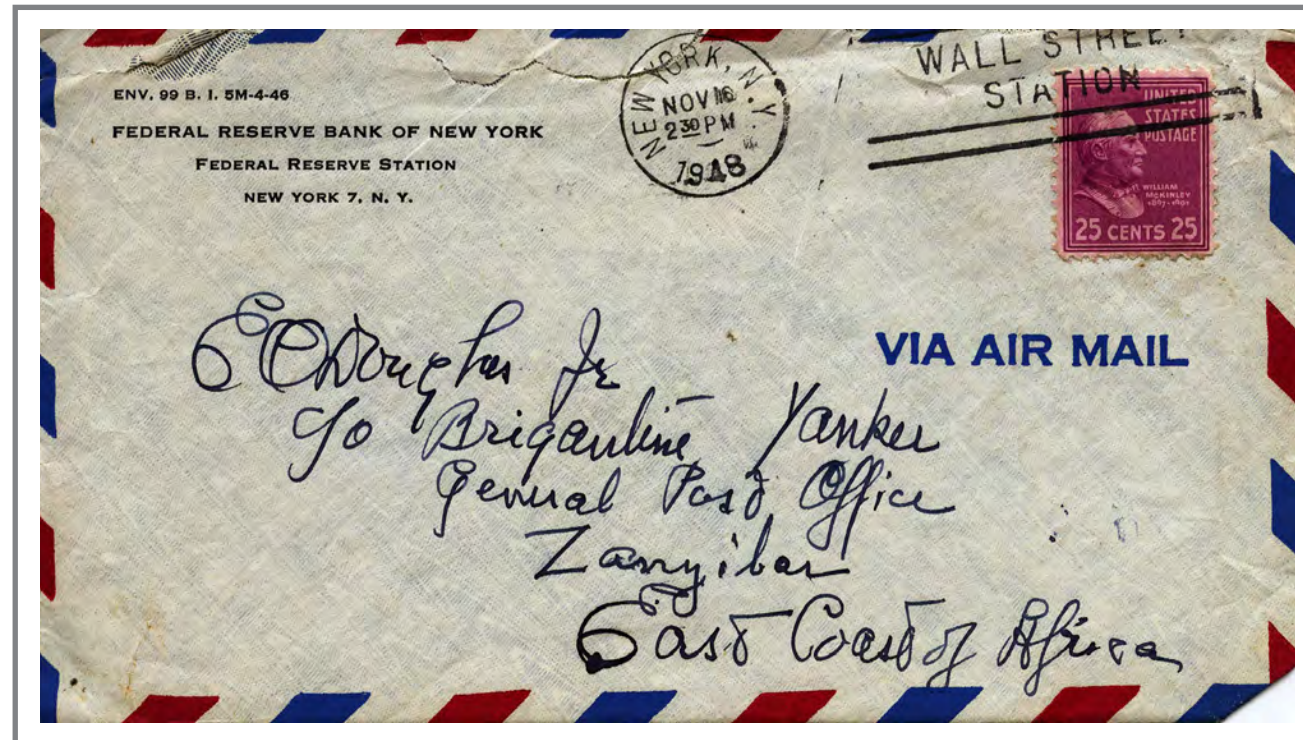 ENV. 99 B. I. 5M-4-46
FEDERAL RESERVE BANK OF NEW YORK
FEDERAL RESERVE STATION
NEW YORK 7, N. Y.
NEW YORK, N.Y.
NOV 16
2 30 PM
1948
WALL STREET
STATION
UNITED
STATES
POSTAGE
WILLIAM
McKINLEY
1897-1901
25 CENTS 25
VIA AIR MAIL
E C Douglas Jr
c/o Brigantine Yankee
General Post Office
Zanzibar
East Coast of Africa